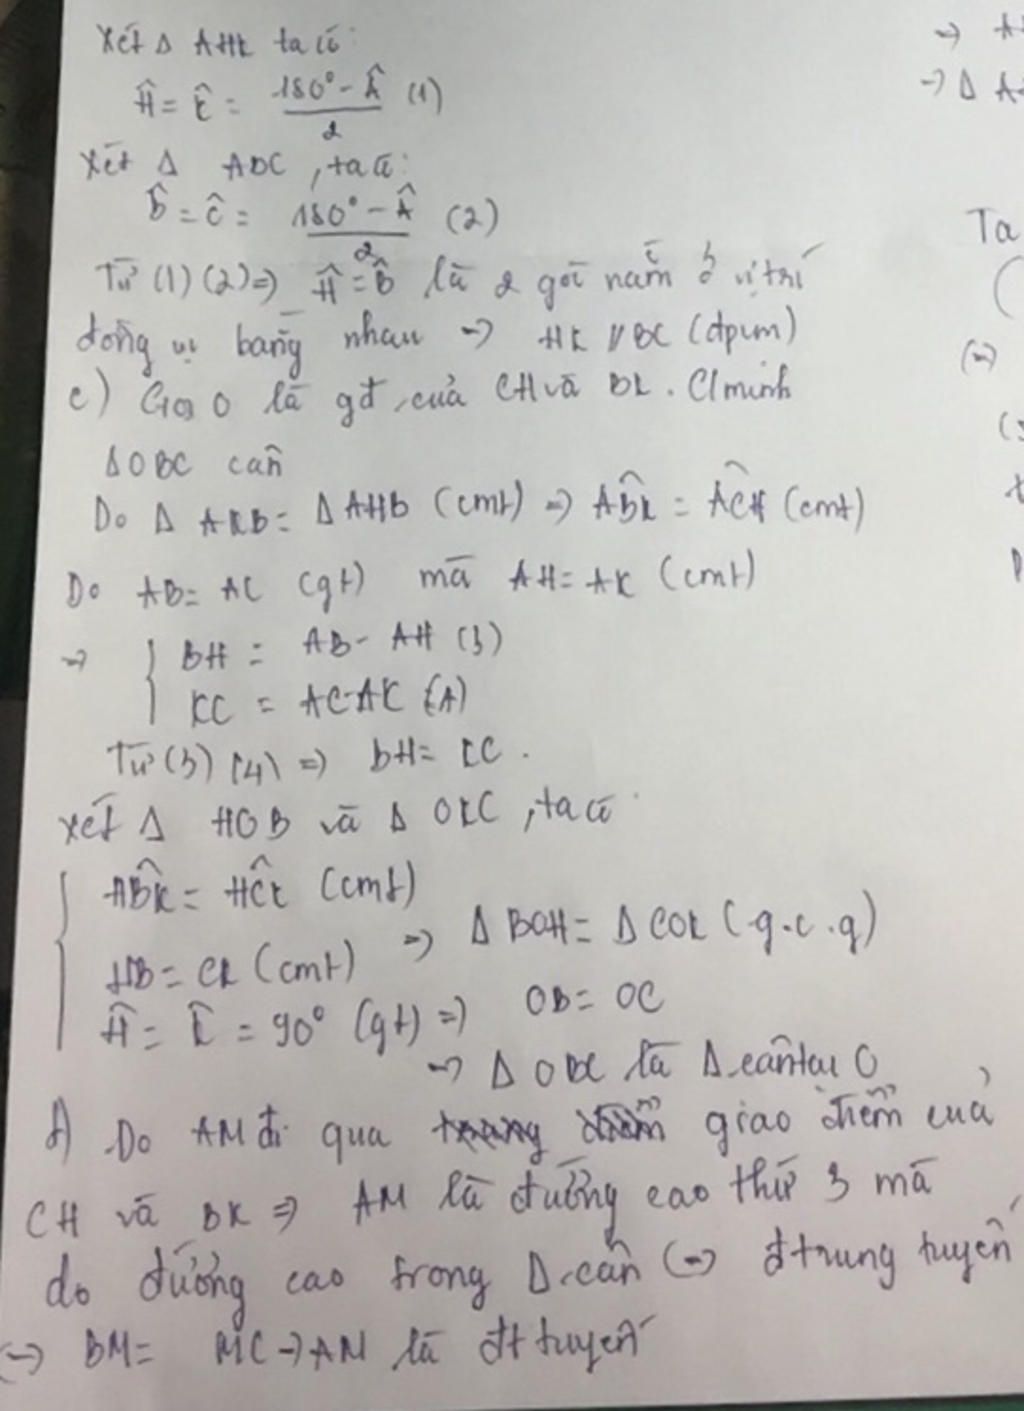 Xét Δ AHK ta có:
Ĥ = K̂ = (180° - Â)/2 (1)
Xét Δ ABC, ta có:
B̂ = Ĉ = (180° - Â)/2 (2)
Từ (1) (2) => Ĥ = B̂ là 2 góc nằm ở vị trí
đồng vị bằng nhau -> HK // BC (đpcm)
c) Gọi O là gđ của CH và BK. C/minh
ΔOBC cân
Do Δ AKB = Δ AHB (cmt) => ABK̂ = ACĤ (cmt)
Do AB = AC (gt) mà AH = AK (cmt)
-> { BH = AB - AH (3)
KC = AC - AK (4)
Từ (3) (4) => BH = KC.
Xét Δ HOB và Δ OKC, ta có:
{ ABK̂ = HCK̂ (cmt)
HB = CK (cmt) => Δ BOH = Δ COK (g.c.g)
Ĥ = K̂ = 90° (gt) => OB = OC
-> Δ OBC là Δ cân tại O
d) Do AM đi qua giao điểm của
CH và BK => AM là đường cao thứ 3 mà
do đường cao trong Δ cân (=> đ trung tuyến
(-> BM = MC -> AM là đt tuyến
-> A
-> Δ A
Ta
(
(=)